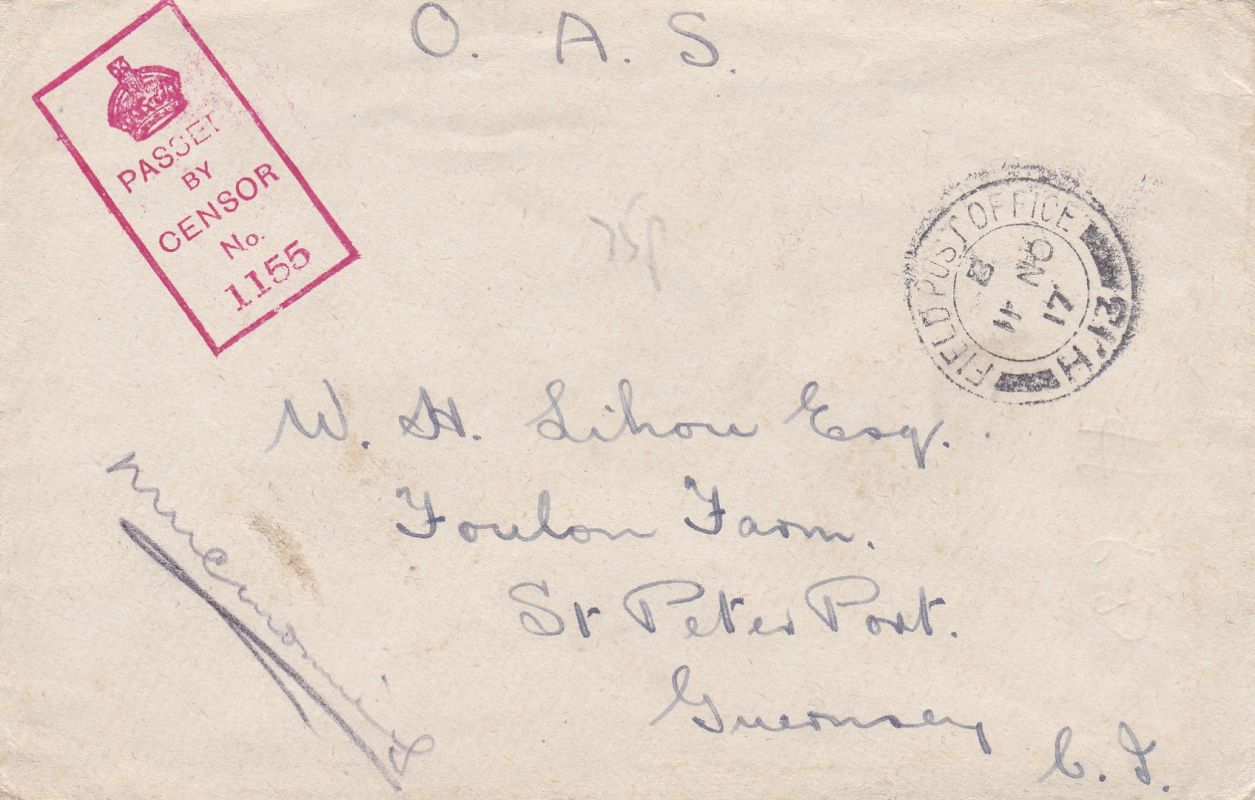 O. A. S.
PASSED
BY
CENSOR
No.
1155
FIELD POST OFFICE
H.21
B
11 NO
17
25p
W. H. Lihou Esq.
Foulon Farm.
St Peter Port.
Guernsey
C. I.